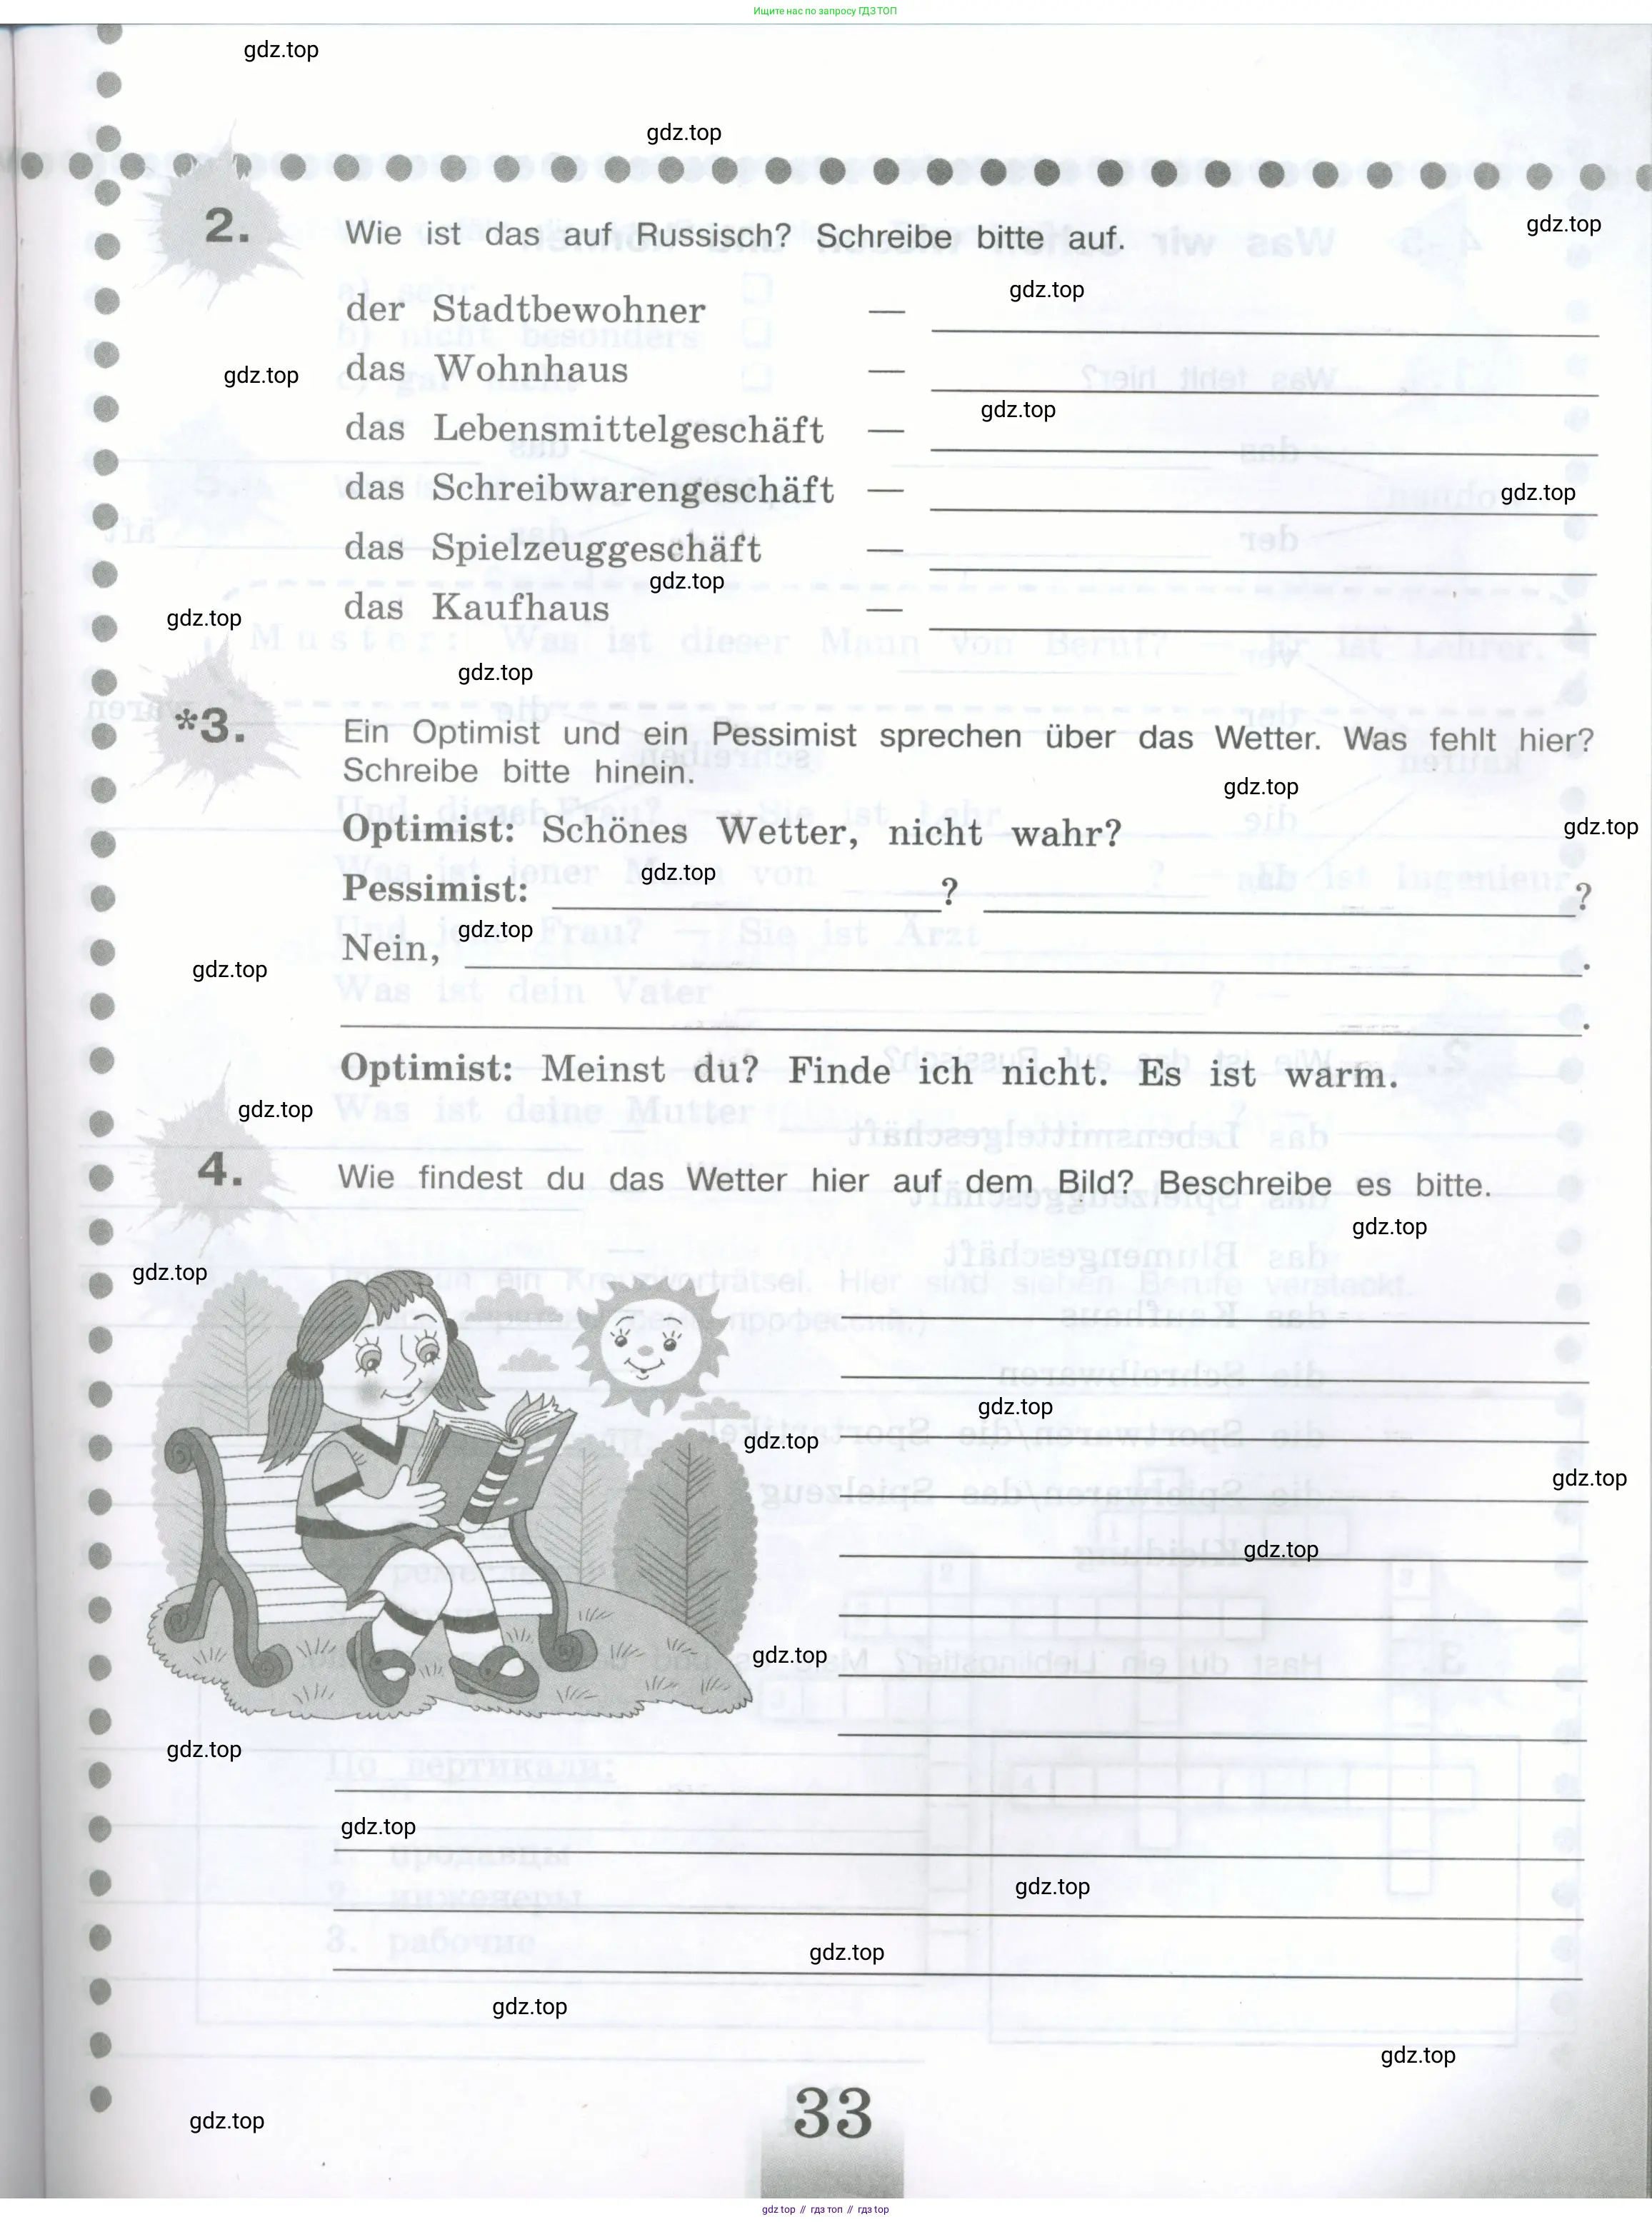 Ищите нас по запросу ГДЗ ТОП
gdz.top
gdz.top
2. Wie ist das auf Russisch? Schreibe bitte auf.
gdz.top
gdz.top
der Stadtbewohner —
das Wohnhaus —
gdz.top
gdz.top
das Lebensmittelgeschäft —
das Schreibwarengeschäft —
gdz.top
das Spielzeuggeschäft —
gdz.top
das Kaufhaus —
gdz.top
gdz.top
*3. Ein Optimist und ein Pessimist sprechen über das Wetter. Was fehlt hier?
Schreibe bitte hinein.
gdz.top
Optimist: Schönes Wetter, nicht wahr?
gdz.top
gdz.top
Pessimist: ? ?
gdz.top
Nein, .
gdz.top
.
Optimist: Meinst du? Finde ich nicht. Es ist warm.
gdz.top
4. Wie findest du das Wetter hier auf dem Bild? Beschreibe es bitte.
gdz.top
gdz.top
gdz.top
gdz.top
gdz.top
gdz.top
gdz.top
gdz.top
gdz.top
gdz.top
gdz.top
gdz.top
gdz.top
33
gdz.top
gdz top // гдз топ // gdz top